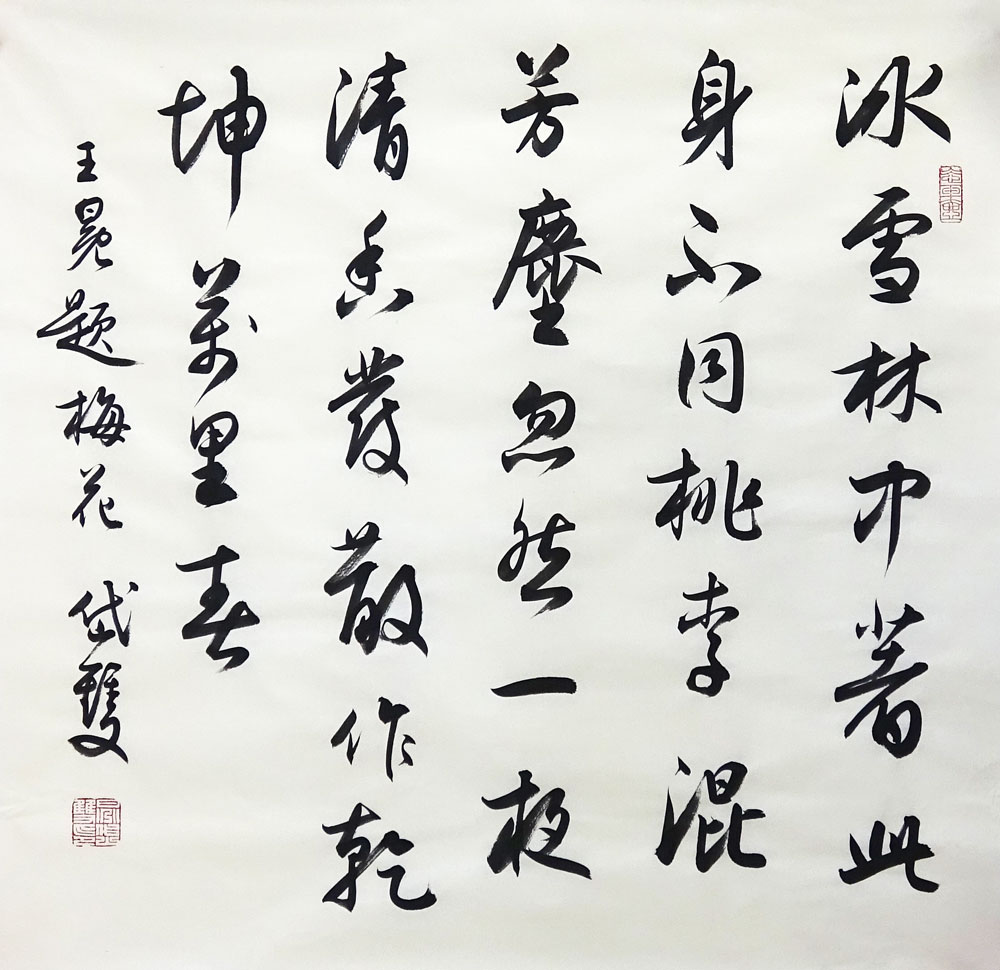 冰雪林中著此
身不同桃李混
芳塵忽然一夜
清香發散作乾
坤萬里春
王冕題梅花 岱雙